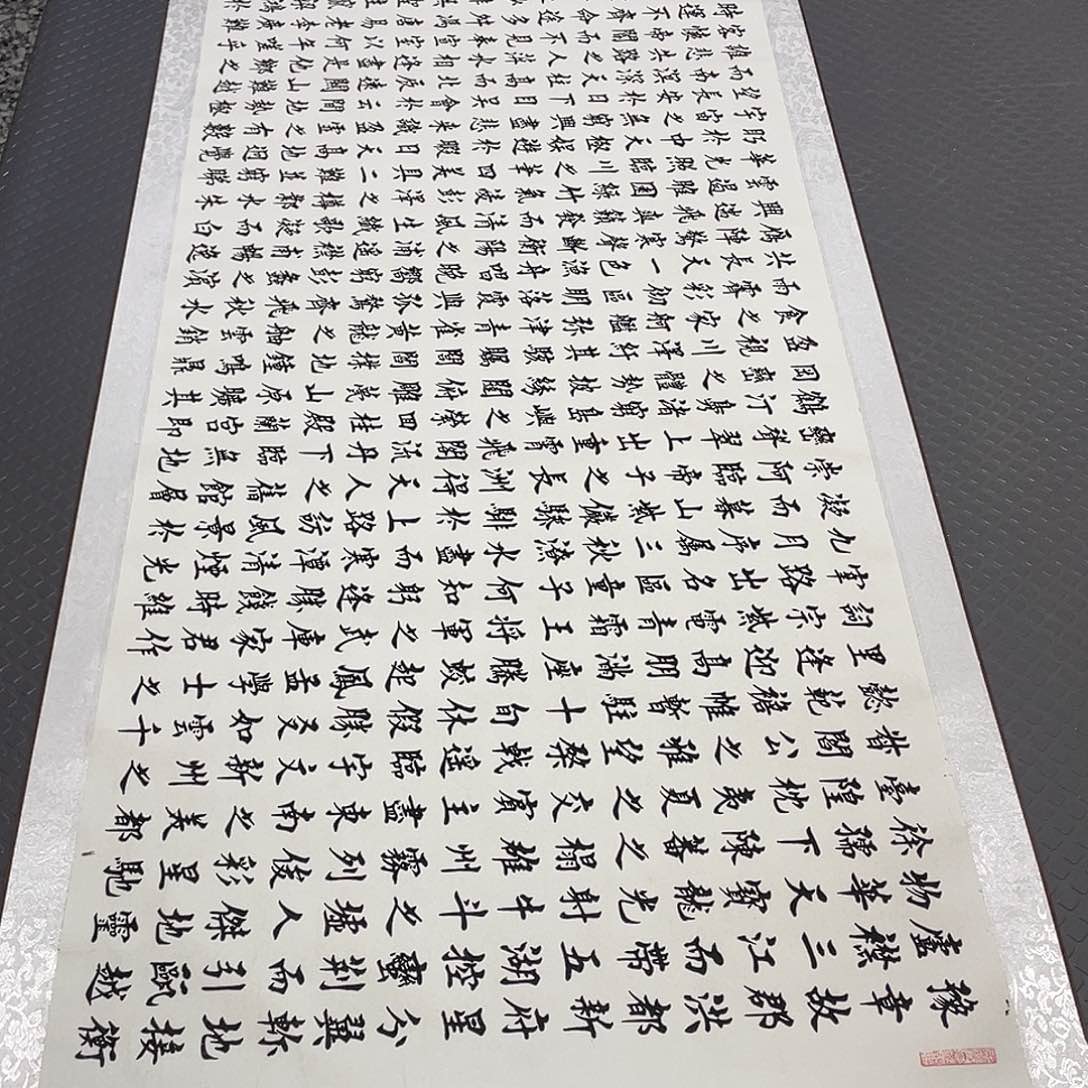 豫章故郡洪都新府星分翼軫地接衡
廬襟三江而帶五湖控蠻荊而引甌越
物華天寶龍光射牛斗之墟人傑地靈
徐孺下陳蕃之榻雄州霧列俊彩星馳
臺隍枕夷夏之交賓主盡東南之美都
督閻公之雅望棨戟遙臨宇文新州之
懿範襜帷暫駐十旬休假勝友如雲千
里逢迎高朋滿座騰蛟起鳳孟學士之
詞宗紫電青霜王將軍之武庫家君作
宰路出名區童子何知躬逢勝餞時維
九月序屬三秋潦水盡而寒潭清煙光
凝而暮山紫儼驂騑於上路訪風景於
崇阿臨帝子之長洲得天人之舊館層
巒聳翠上出重霄飛閣流丹下臨無地
鶴汀鳧渚窮島嶼之縈回桂殿蘭宮即
岡巒之體勢披綉闥俯雕甍山原曠其
盈視川澤紆其駭矚閭閻撲地鐘鳴鼎
食之家舸艦彌津青雀黃龍之舳雲銷
雨霽彩徹區明落霞與孤鶩齊飛秋水
共長天一色漁舟唱晚響窮彭蠡之濱
雁陣驚寒聲斷衡陽之浦遙襟甫暢逸
興遄飛爽籟發而清風生纖歌凝而白
雲遏睢園綠竹氣凌彭澤之樽鄴水朱
華光照臨川之筆四美具二難並窮睇
眄於中天極娛遊於暇日天高地迥覺
宇宙之無窮興盡悲來識盈虛之有數
望長安於日下目吳會於雲間地勢極
而南溟深天柱高而北辰遠關山難越
誰悲失路之人萍水相逢盡是他鄉之
客懷帝閽而不見奉宣室以何年嗟乎
時運不齊命途多舛馮唐易老李廣難